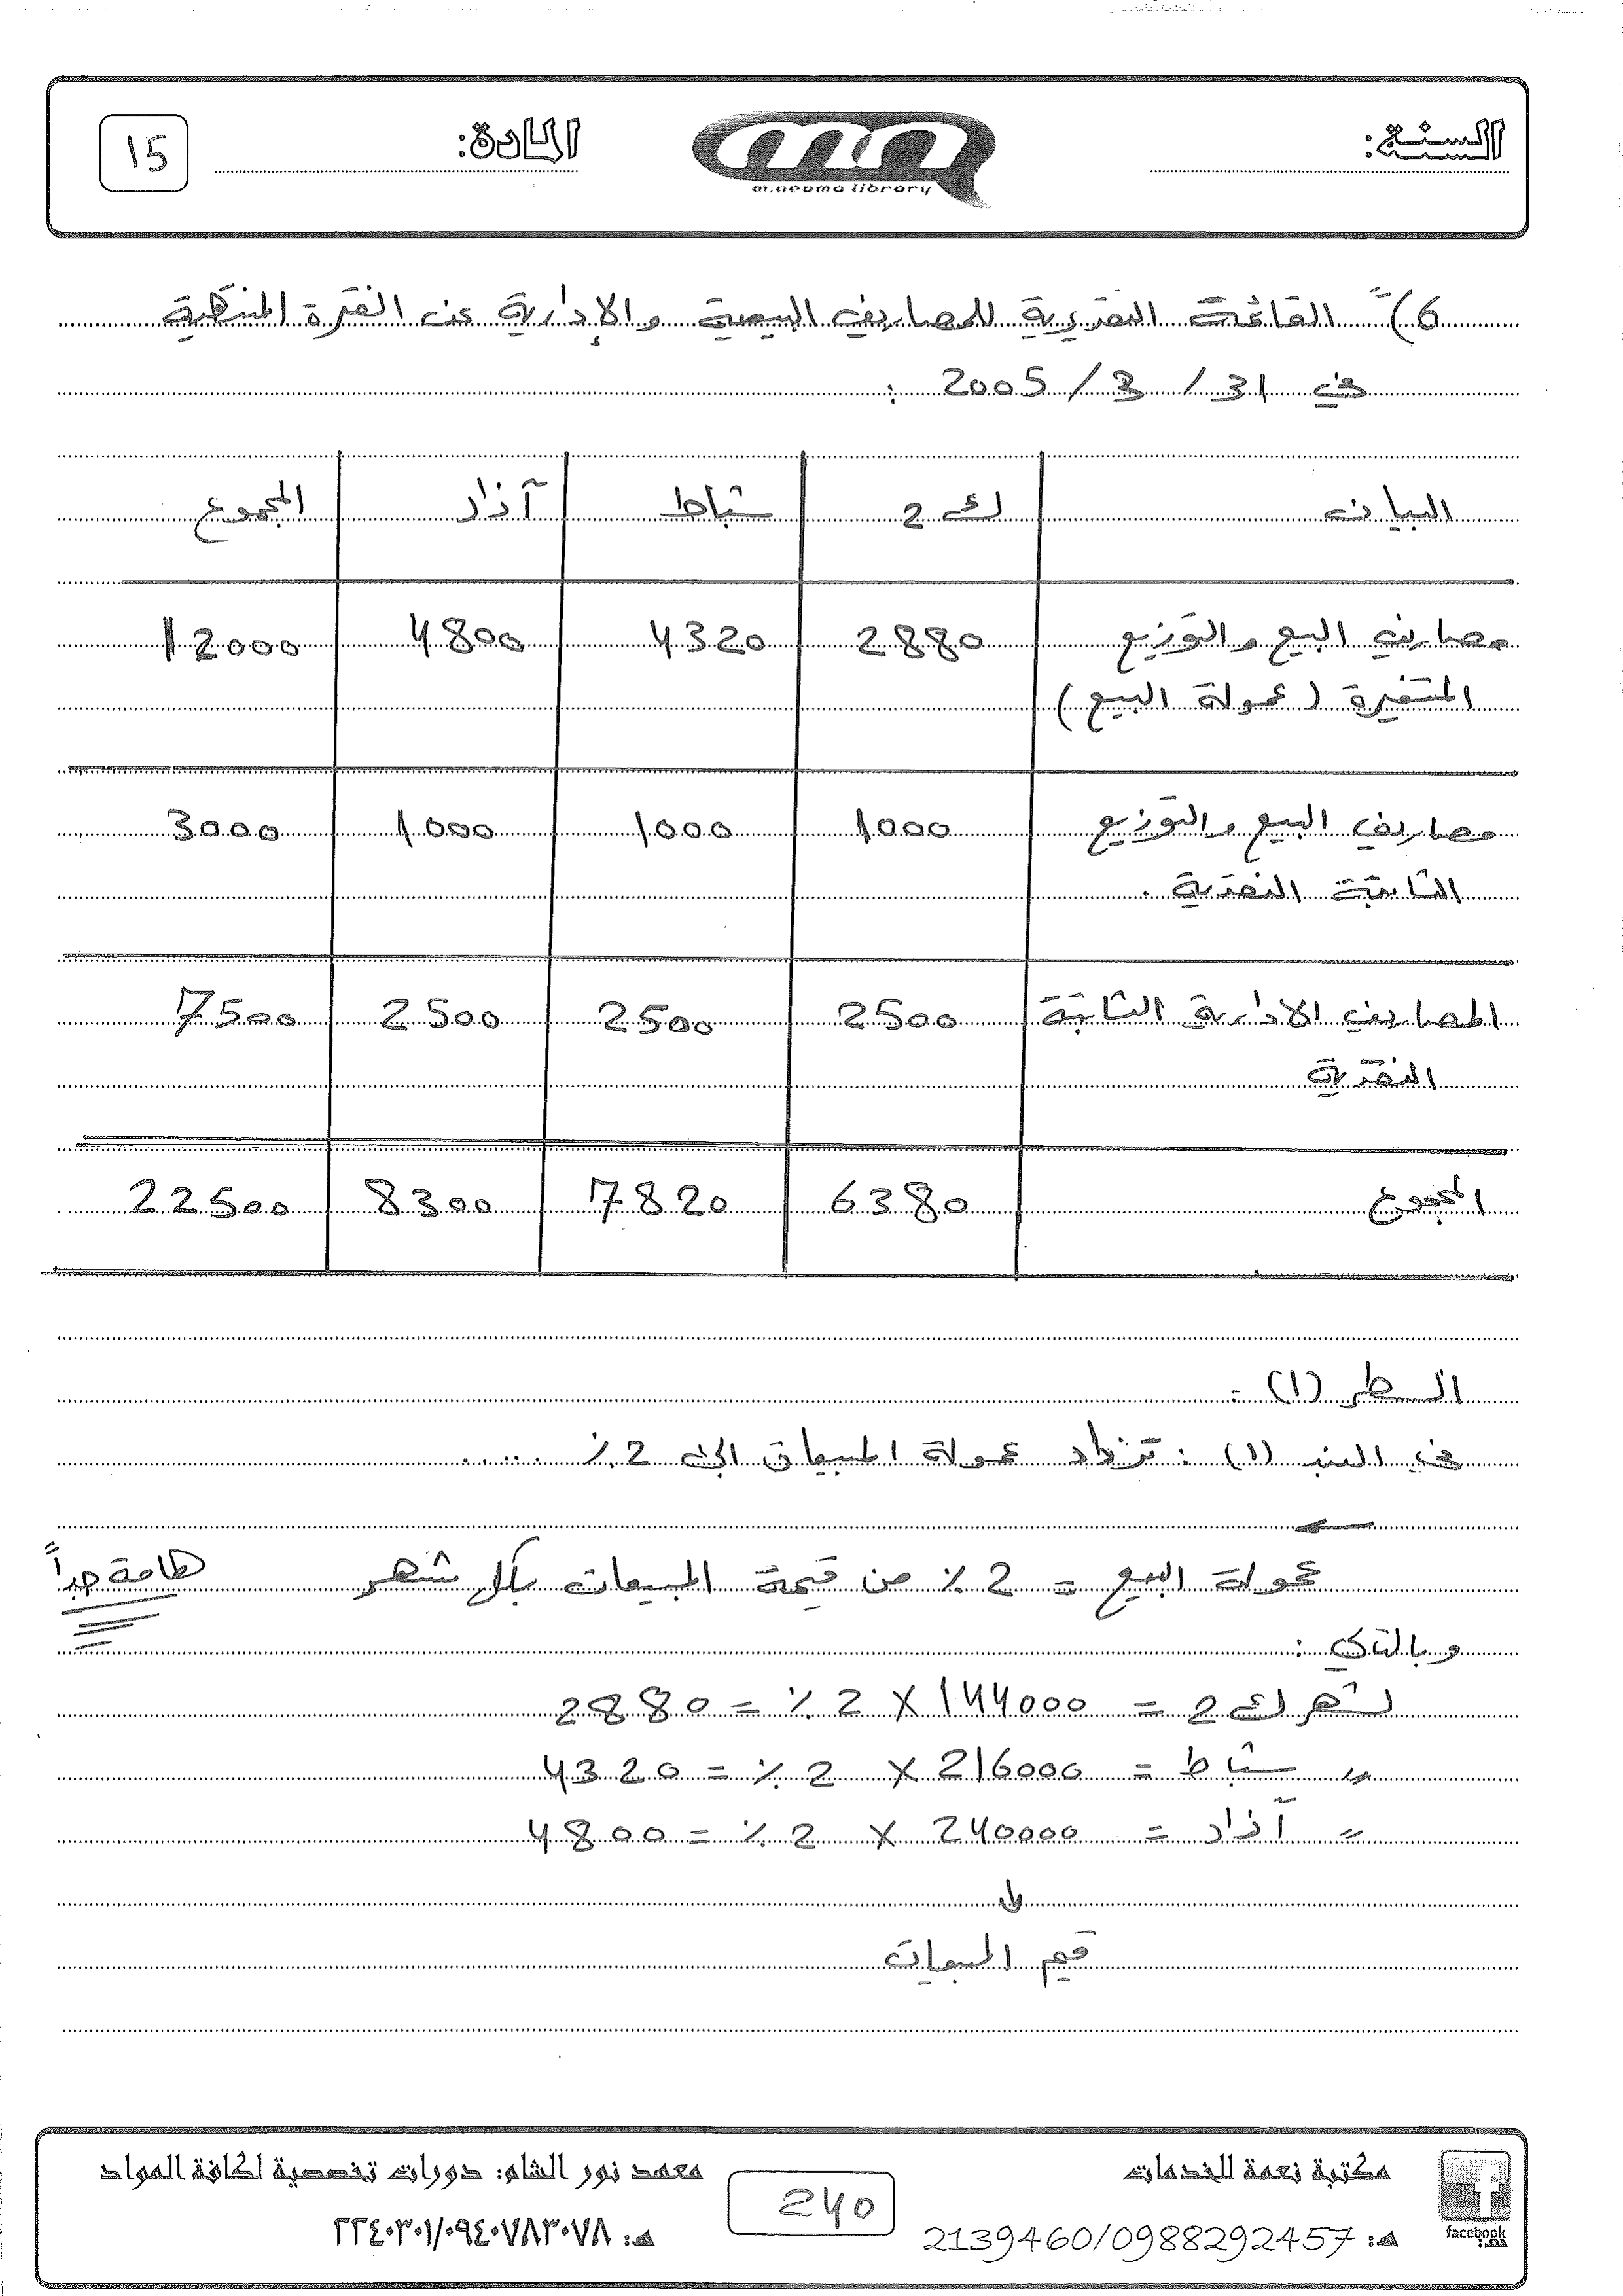 السنة:
m.neama library
المادة:
15
6) القائمة التقديرية للمصاريف البيعية والإدارية عن الفترة المنتهية
في 31 / 3 / 2005 :
البيان ك 2 شباط آذار المجموع
مصاريف البيع والتوزيع 2880 4320 4800 12000
المتغيرة (عمولة البيع)
مصاريف البيع والتوزيع 1000 1000 1000 3000
الثابتة النقدية .
المصاريف الادارية الثابتة 2500 2500 2500 7500
النقدية
المجموع 6380 7820 8300 22500
السطر (1) :
في البند (1) : تزداد عمولة المبيعات الى 2٪ .....
عمولة البيع = 2 ٪ من قيمة المبيعات بكل شهر هامة جداً
وبالتالي :
لشهر ك 2 = 144000 × 2 ٪ = 2880
〃 شباط = 216000 × 2 ٪ = 4320
〃 آذار = 240000 × 2 ٪ = 4800
↓
قيم المبيعات
مكتبة نعمة للخدمات
هـ: 2139460/0988292457
facebook
240
معهد نور الشام: دورات تخصصية لكافة المواد
هـ: ٢٢٤٠٣٠١/٠٩٤٠٧٨٣٠٧٨